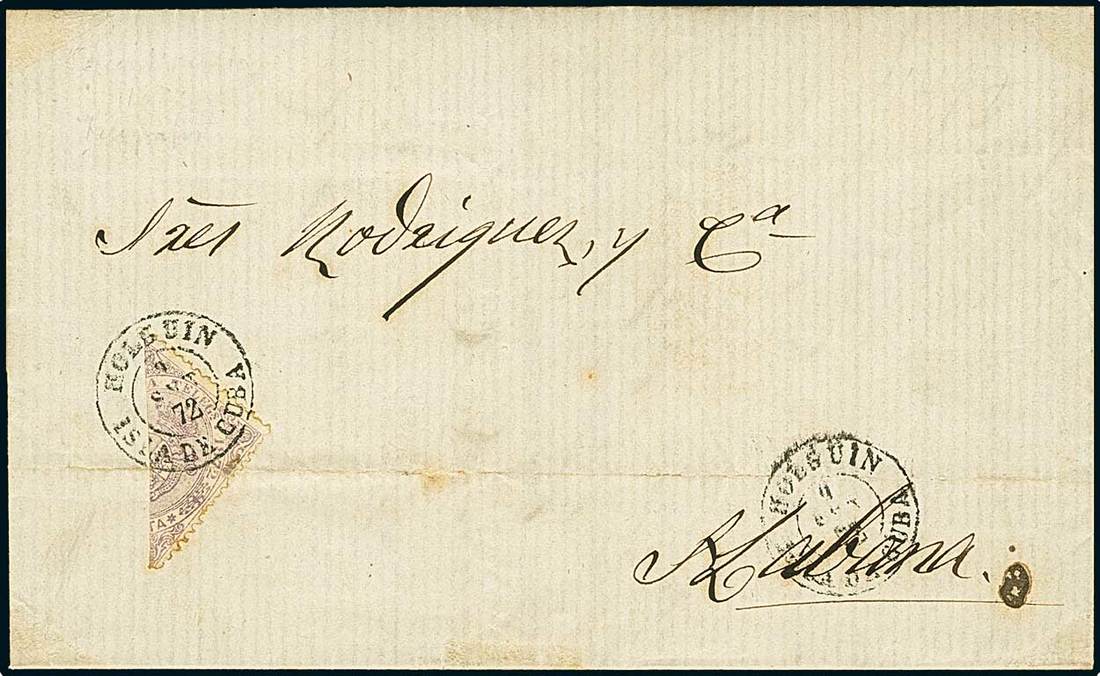 Sres Rodriguez, y Cª
HOLGUIN
72
ISLA DE CUBA
TA*
HOLGUIN
9
CUBA
Habana.